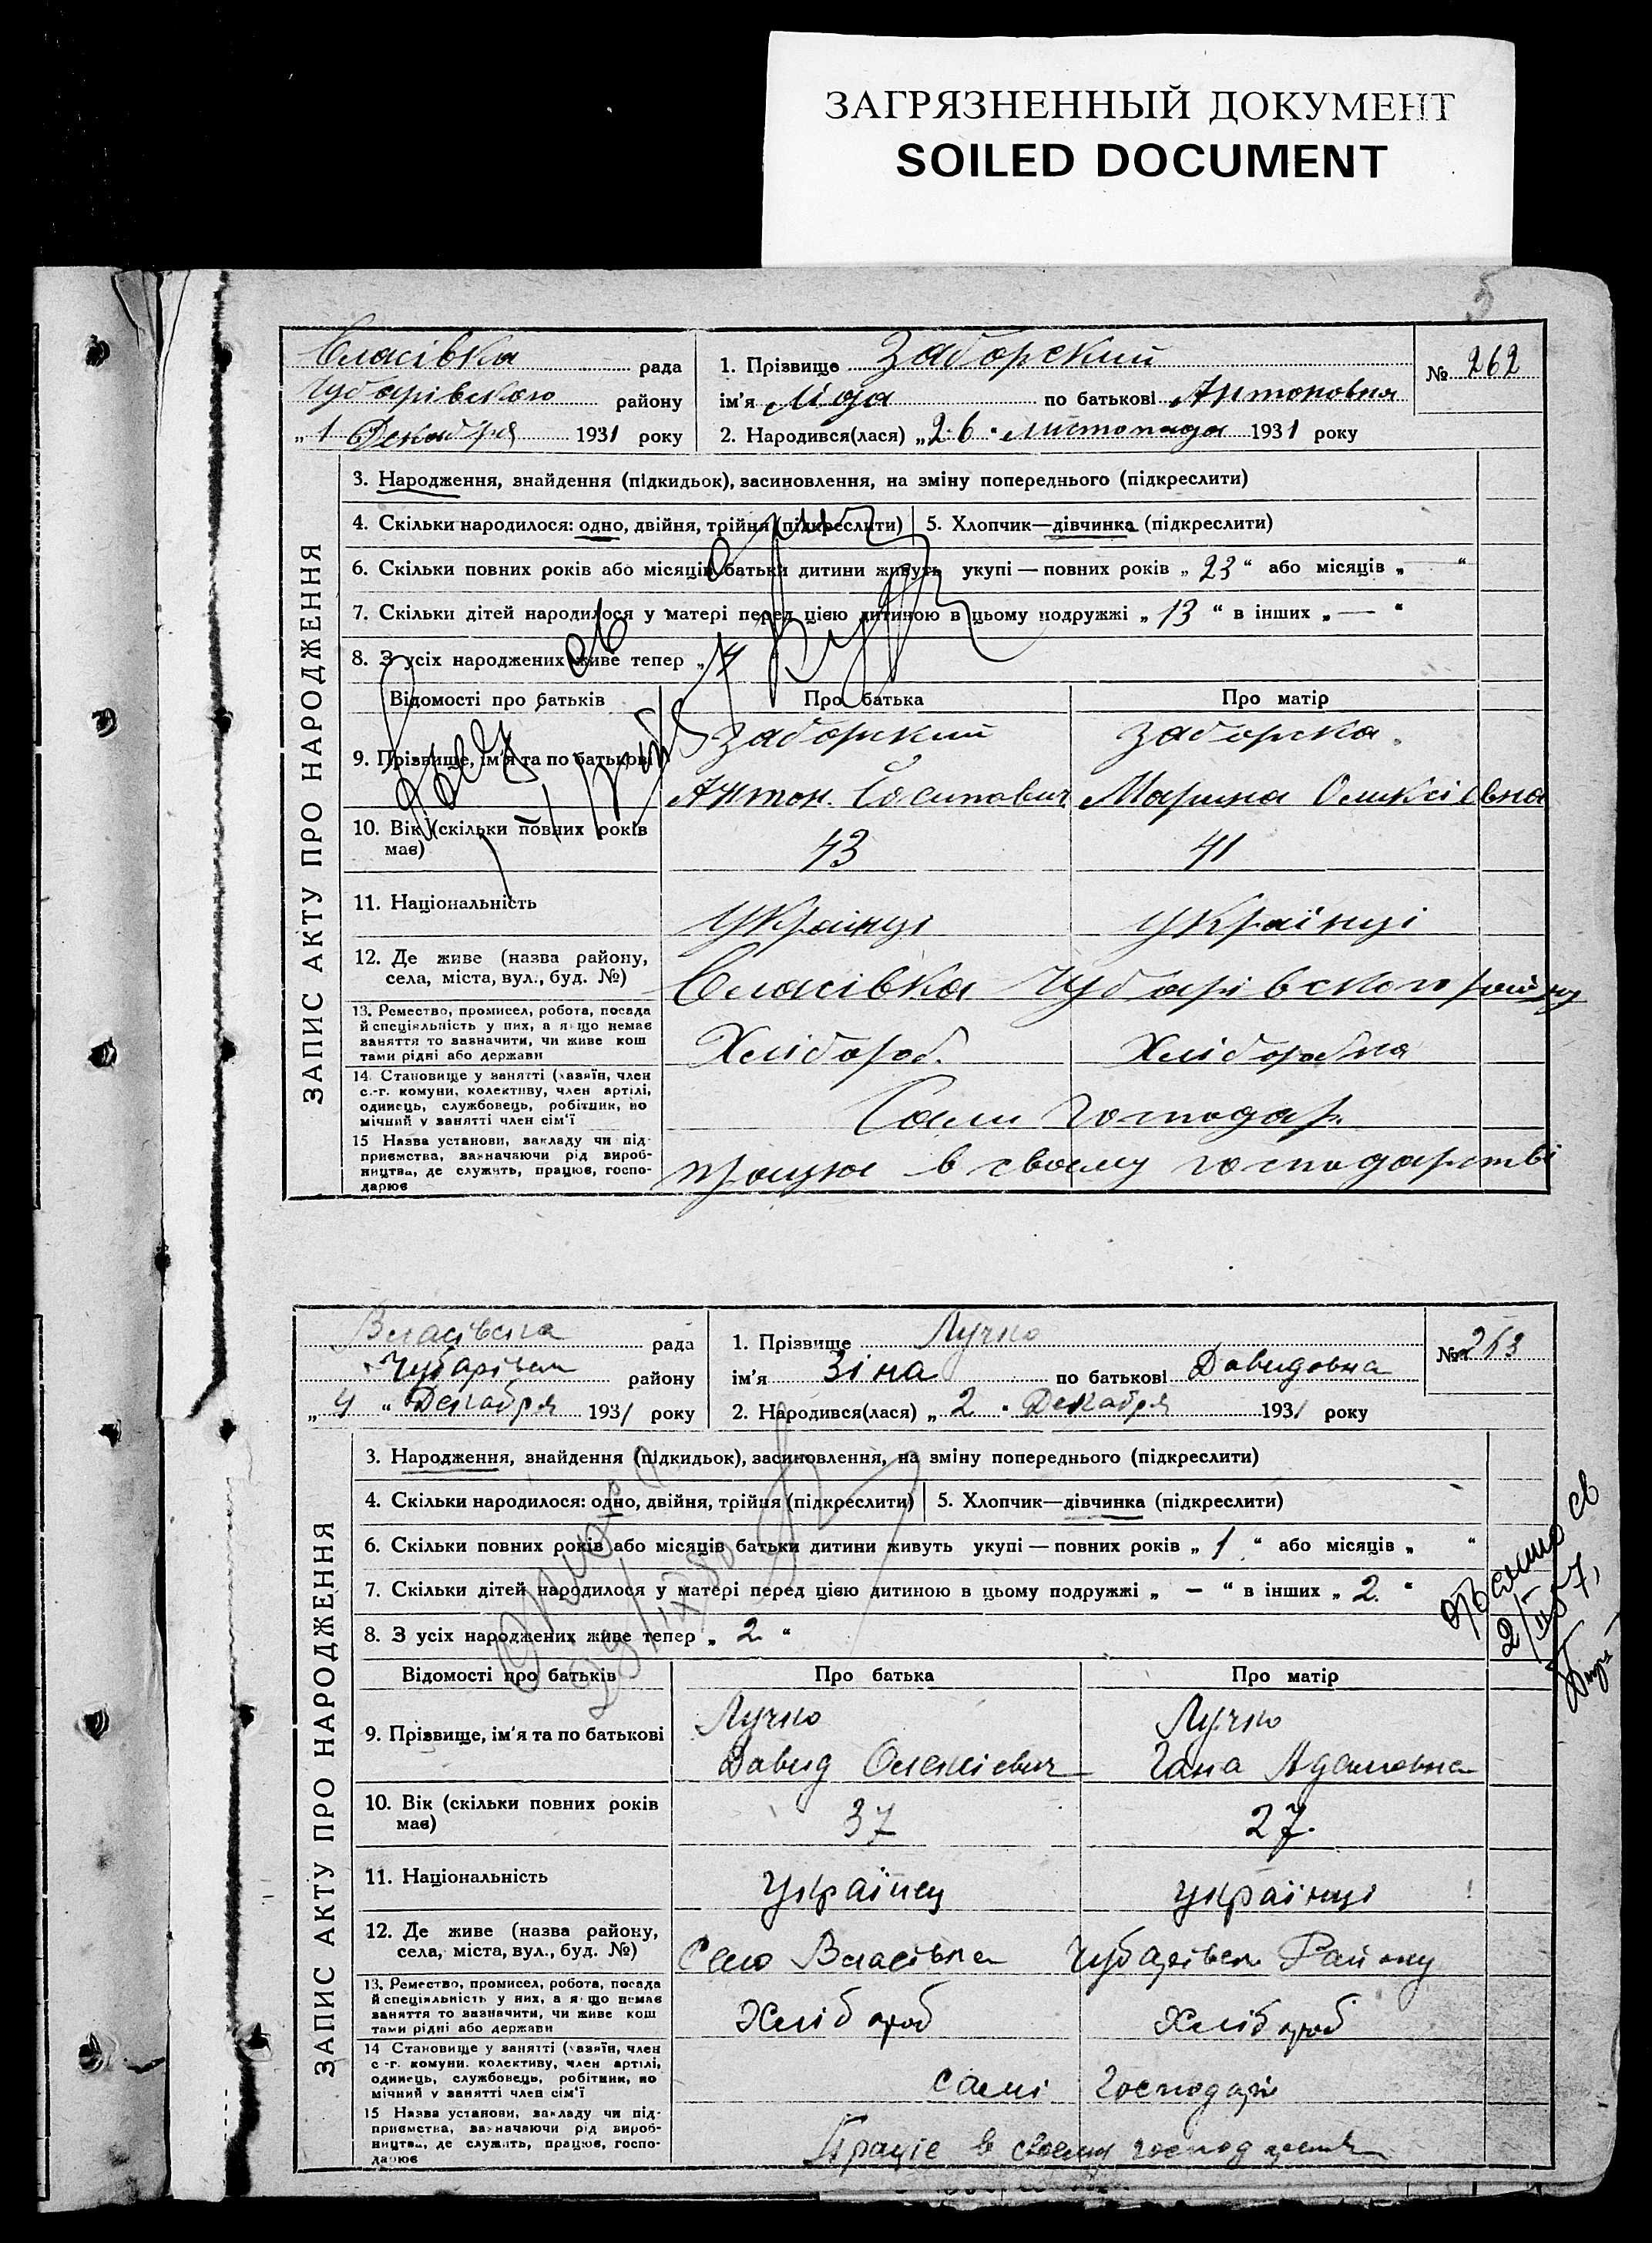 ЗАГРЯЗНЕННЫЙ ДОКУМЕНТ
SOILED DOCUMENT
5
Власівка рада
Чубарівского району
„ 1 Декабря 1931 року
1. Прізвище Заборский
ім'я Ліда по батькові Антоновна
2. Народився(лася) „26 " листопада 1931 року
№ 262
ЗАПИС АКТУ ПРО НАРОДЖЕННЯ
3. Народження, знайдення (підкидьок), засиновлення, на зміну попереднього (підкреслити)
4. Скільки народилося: одно, двійня, трійня (підкреслити) 5. Хлопчик—дівчинка (підкреслити)
6. Скільки повних років або місяців батьки дитини живуть укупі — повних років „ 23 " або місяців „ — "
7. Скільки дітей народилося у матері перед цією дитиною в цьому подружжі „ 13 " в інших „ — "
8. З усіх народжених живе тепер „
Відомості про батьків Про батька Про матір
Заборский Заборска.
9. Прізвище, ім'я та по батькові
Антон Марина
10. Вік (скільки повних років
має)
43 41
11. Національність
Українці Українці
12. Де живе (назва району,
села, міста, вул., буд. №)
Власівка Чубарівского району
13. Ремество, промисел, робота, посада
й спеціяльність у них, а якщо немає
заняття то зазначити, чи живе кош
тами рідні або держави
Хлібороб. Хліборобка
14. Становище у занятті (хазяїн, член
с.-г. комуни, колективу, член артілі,
одинець, службовець, робітник, по
мічний у занятті член сім'ї
Сами господар.
15 Назва установи, закладу чи під-
приємства, зазначаючи рід вироб-
ництва, де служить, працює, госпо-
дарює
працює в своєму господарстві
Власівска рада
Чубарівск району
„ 4 " Декабря 1931 року
1. Прізвище Лучко
ім'я Зіна по батькові Давидовна
2. Народився(лася) „ 2 " Декабря 1931 року
№ 263
ЗАПИС АКТУ ПРО НАРОДЖЕННЯ
3. Народження, знайдення (підкидьок), засиновлення, на зміну попереднього (підкреслити)
4. Скільки народилося: одно, двійня, трійня (підкреслити) 5. Хлопчик—дівчинка (підкреслити)
6. Скільки повних років або місяців батьки дитини живуть укупі — повних років „ 1 " або місяців „ "
7. Скільки дітей народилося у матері перед цією дитиною в цьому подружжі „ — " в інших „ 2. "
8. З усіх народжених живе тепер „ 2 "
Відомості про батьків Про батька Про матір
Лучко Лучко
9. Прізвище, ім'я та по батькові
Давид Олексієвич Гана Адамовна
10. Вік (скільки повних років
має)
37 27.
11. Національність
Українец українці
12. Де живе (назва району,
села, міста, вул., буд. №)
Село Власівка Чубарівск Району
13. Ремество, промисел, робота, посада
й спеціяльність у них, а якщо немає
заняття то зазначити, чи живе кош
тами рідні або держави
Хлібороб Хлібороб
14 Становище у занятті (хазяїн, член
с -г. комуни. колективу, член артілі,
одинець, службовець, робітник, по
мічний у занятті член сім'ї
самі господарі
15 Назва установи, закладу чи під-
приємства, зазначаючи рід вироб-
ництва, де служить, працює, госпо-
дарює
Працює в своему